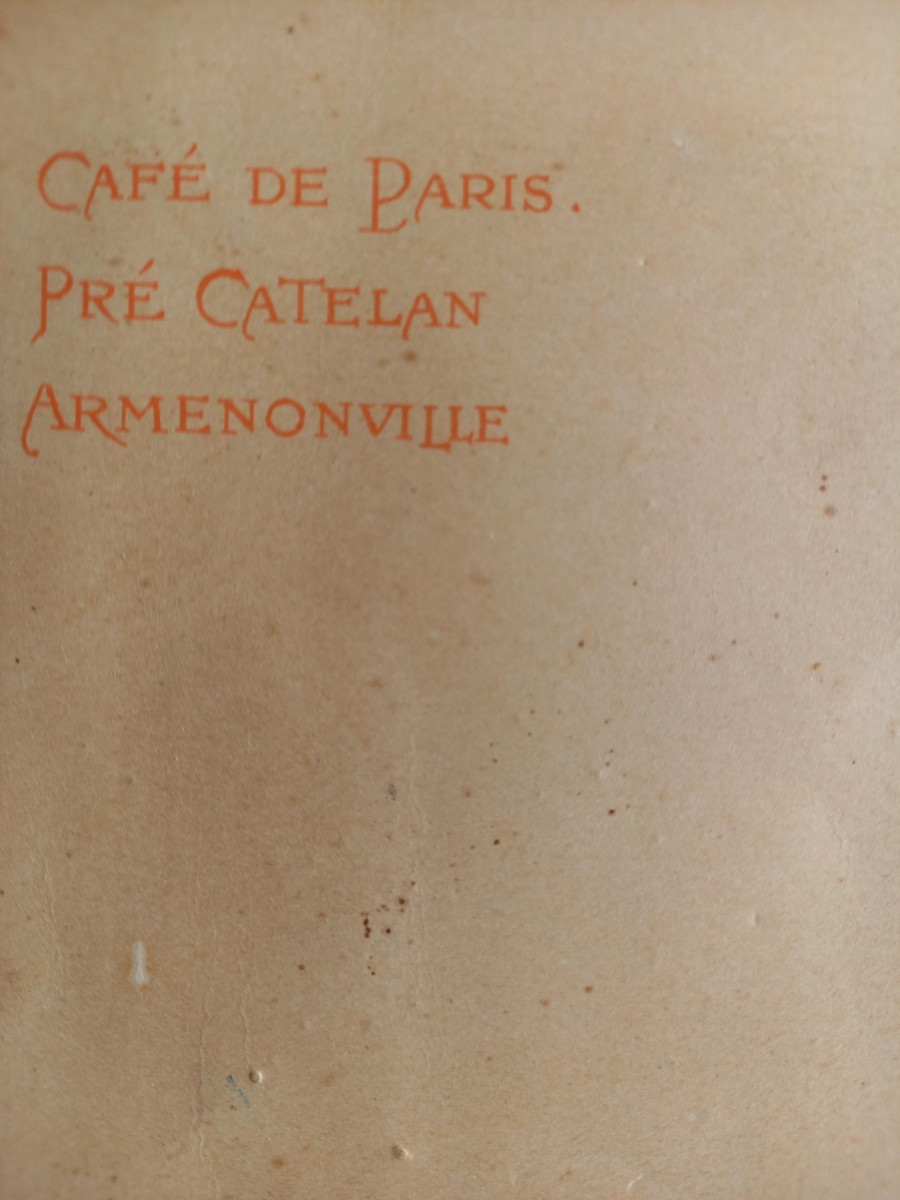 CAFÉ DE PARIS.
PRÉ CATELAN
ARMENONVILLE